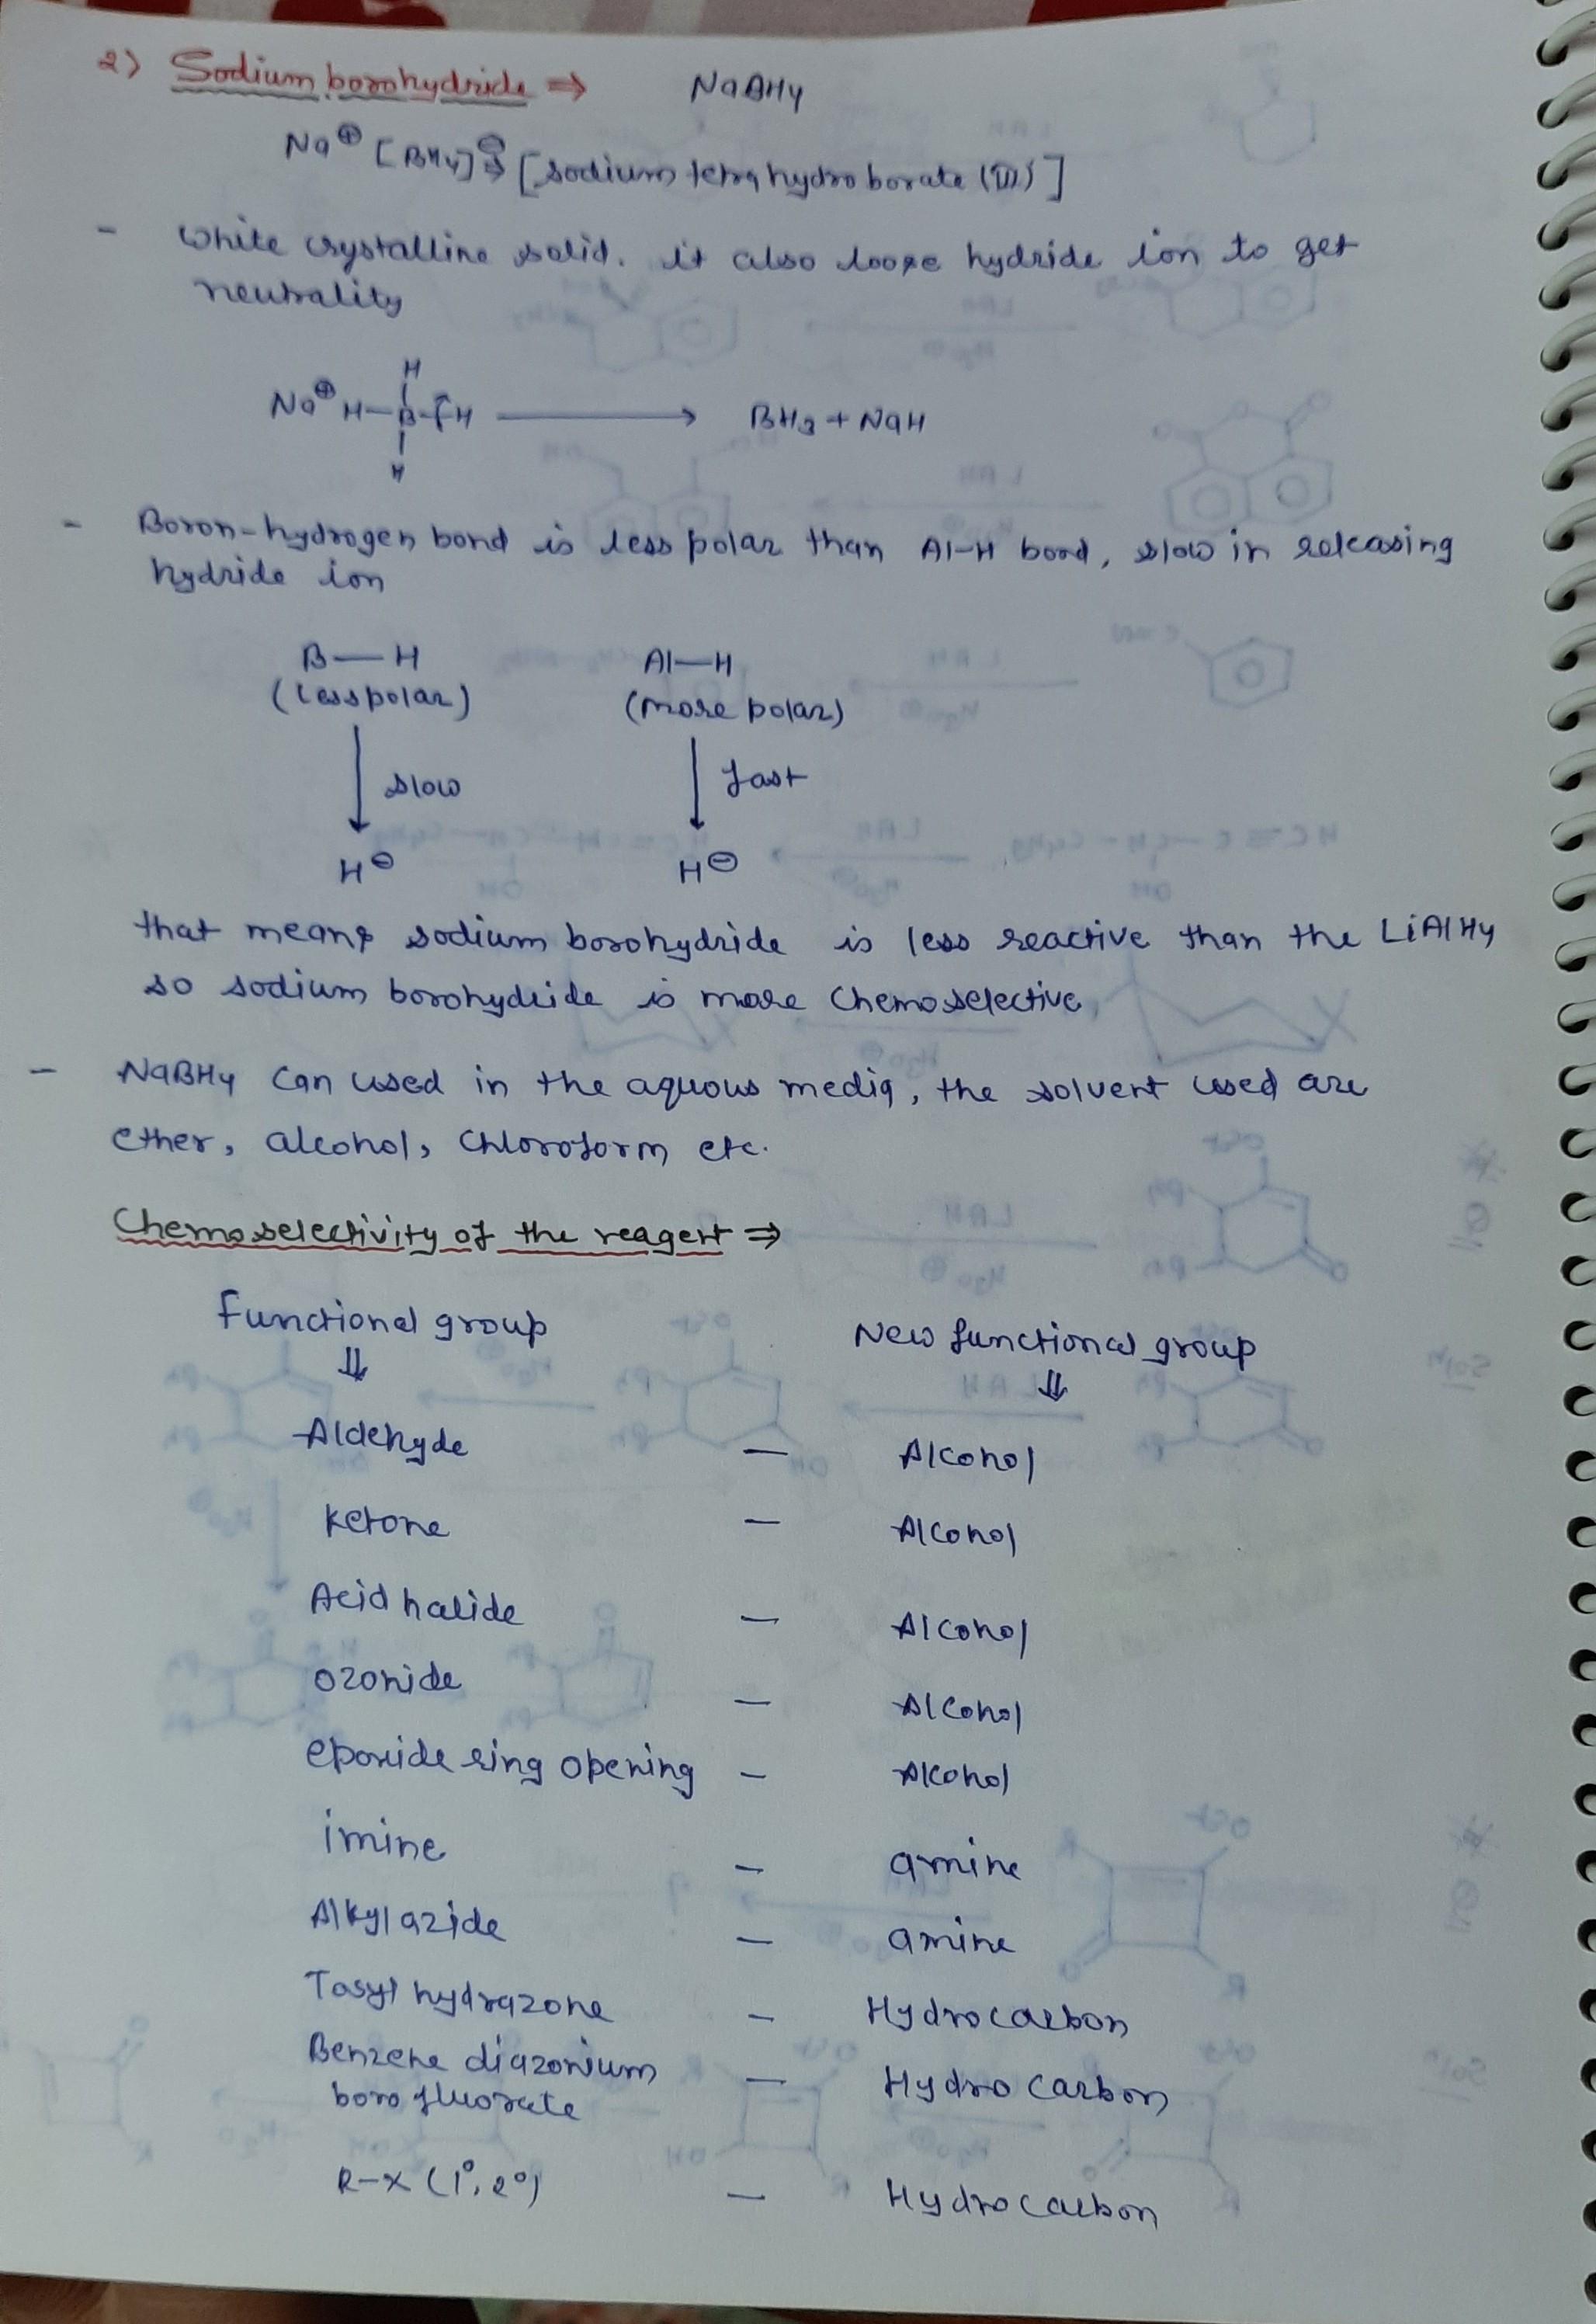 2) Sodium borohydride ⇒ NaBH4
Na⊕ [BH4]⊖ ⇒ [sodium tetrahydroborate (III)]
- White crystalline solid. it also loose hydride ion to get
neutrality
H
Na⊕ H—B—H ⟶ BH3 + NaH
H
- Boron-hydrogen bond is less polar than Al-H bond, slow in releasing
hydride ion
B—H Al—H
(less polar) (more polar)
↓ slow ↓ fast
H⊖ H⊖
that means sodium borohydride is less reactive than the LiAlH4
so sodium borohydride is more chemoselective
- NaBH4 can used in the aquous media, the solvent used are
ether, alcohol, chloroform etc.
Chemoselectivity of the reagent ⇒
functional group New functional group
⇓ ⇓
Aldehyde — Alcohol
Ketone — Alcohol
Acid halide — Alcohol
ozonide — Alcohol
epoxide ring opening — Alcohol
imine — amine
Alkyl azide — amine
Tosyl hydrazone — Hydrocarbon
Benzene diazonium — Hydro carbon
boro fluorate
R-X (1°, 2°) — Hydrocarbon